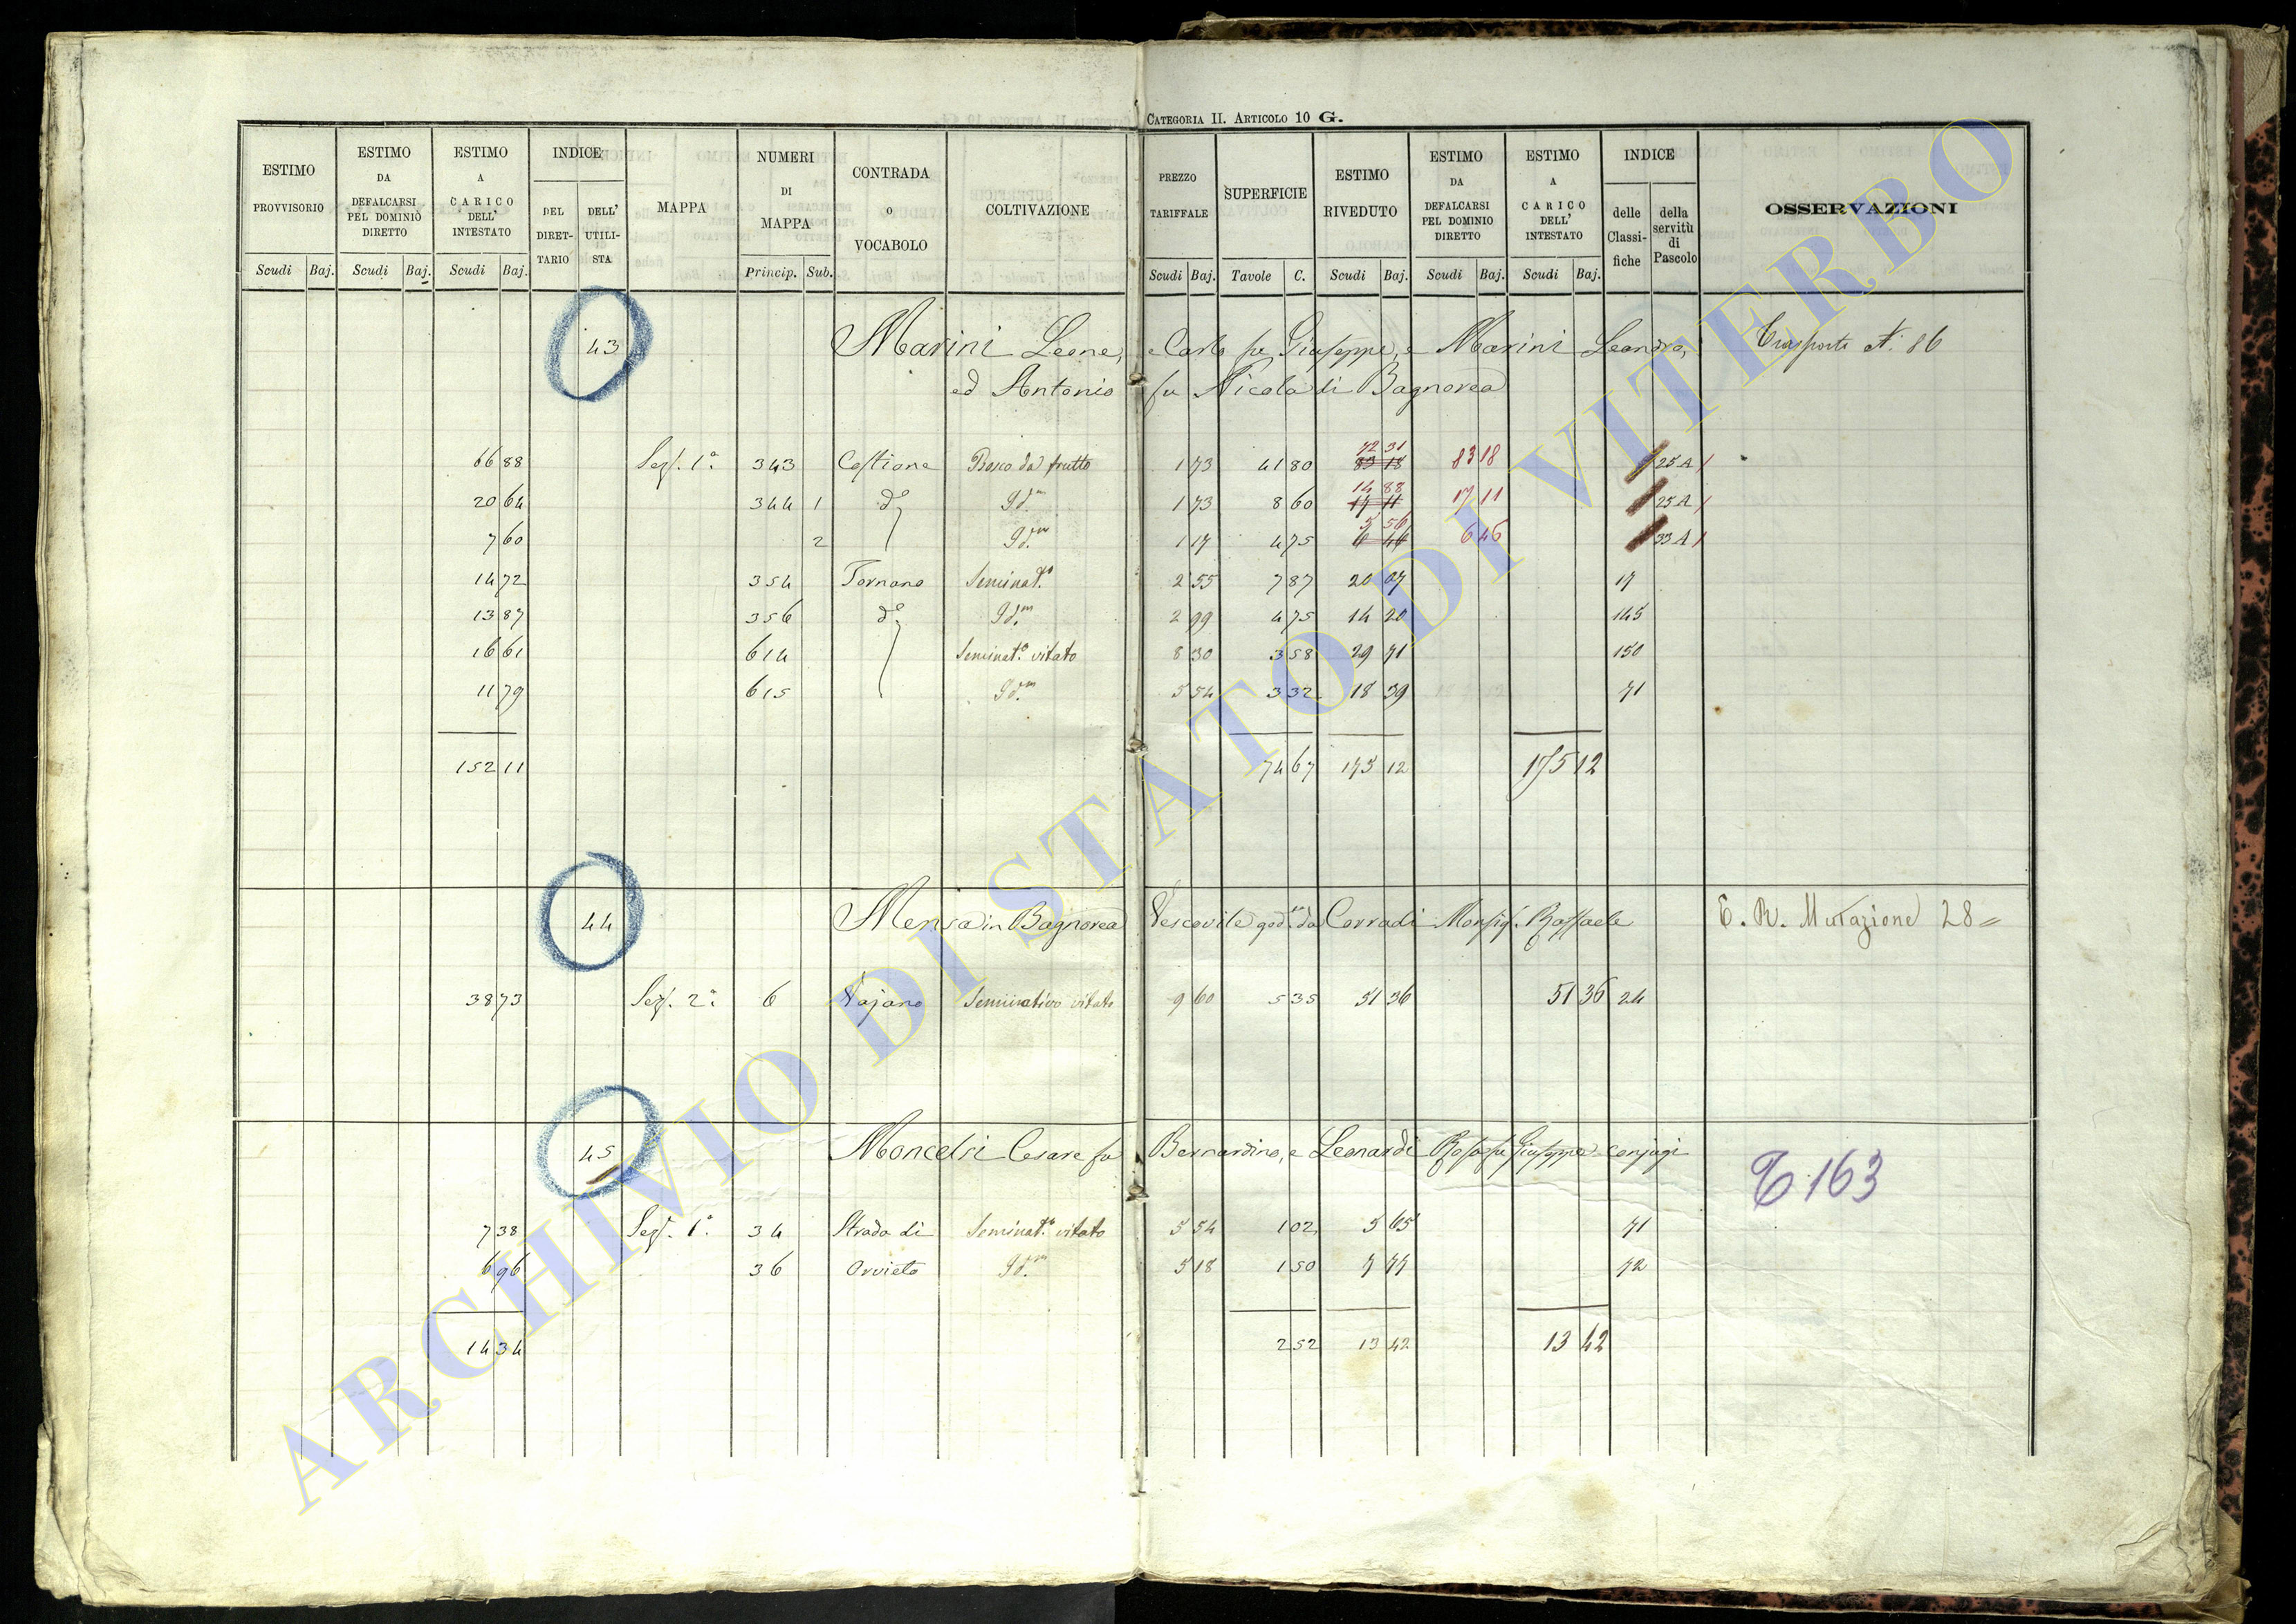 CATEGORIA II. ARTICOLO 10 G.
ESTIMO PROVVISORIO
ESTIMO DA DEFALCARSI PEL DOMINIO DIRETTO
ESTIMO A CARICO DELL' INTESTATO
INDICE
DEL DIRETTARIO
DELL' UTILISTA
MAPPA
NUMERI DI MAPPA
CONTRADA o VOCABOLO
COLTIVAZIONE
PREZZO TARIFFALE
SUPERFICIE
ESTIMO RIVEDUTO
ESTIMO DA DEFALCARSI PEL DOMINIO DIRETTO
ESTIMO A CARICO DELL' INTESTATO
INDICE
delle Classifiche
della servitù di Pascolo
OSSERVAZIONI
Scudi Baj. Scudi Baj. Scudi Baj. Princip. Sub. Scudi Baj. Tavole C. Scudi Baj. Scudi Baj. Scudi Baj.
43 Marini Leone, e Carlo fu Giuseppe, e Marini Leandro, Trasporto N. 86
ed Antonio fu Nicola di Bagnorea
72 31
66 88 Sez. 1a 343 Costiane Bosco da frutto 1 73 41 80 83 18 83 18 25 A
14 88
20 64 344 1 do Idm 1 73 8 60 17 11 17 11 25 A
5 56
7 60 2 Idm 1 17 4 75 6 46 6 46 33 A
14 72 354 Tornano Seminato 2 55 7 87 20 07 17
13 87 356 do Idm 2 99 4 75 14 20 145
16 61 614 Seminato vitato 8 30 3 58 29 71 150
11 79 615 Idm 5 54 3 32 18 39 71
152 11 74 67 175 12 175 12
44 Mensa in Bagnorea Vescovile god. da Corradi Monsig. Raffaele T. R. Mutazione 28
38 73 Sez. 2a 6 Vajano Seminativo vitato 9 60 5 35 51 36 51 36 24
45 Moncelsi Cesare fu Bernardino, e Leonardi Rosa fu Giuseppe conjugi T 163
7 38 Sez. 1a 34 Strada di Seminato vitato 5 54 1 02 5 65 71
6 96 36 Orvieto Idm 5 18 1 50 7 77 72
14 34 2 52 13 42 13 42
ARCHIVIO DI STATO DI VITERBO